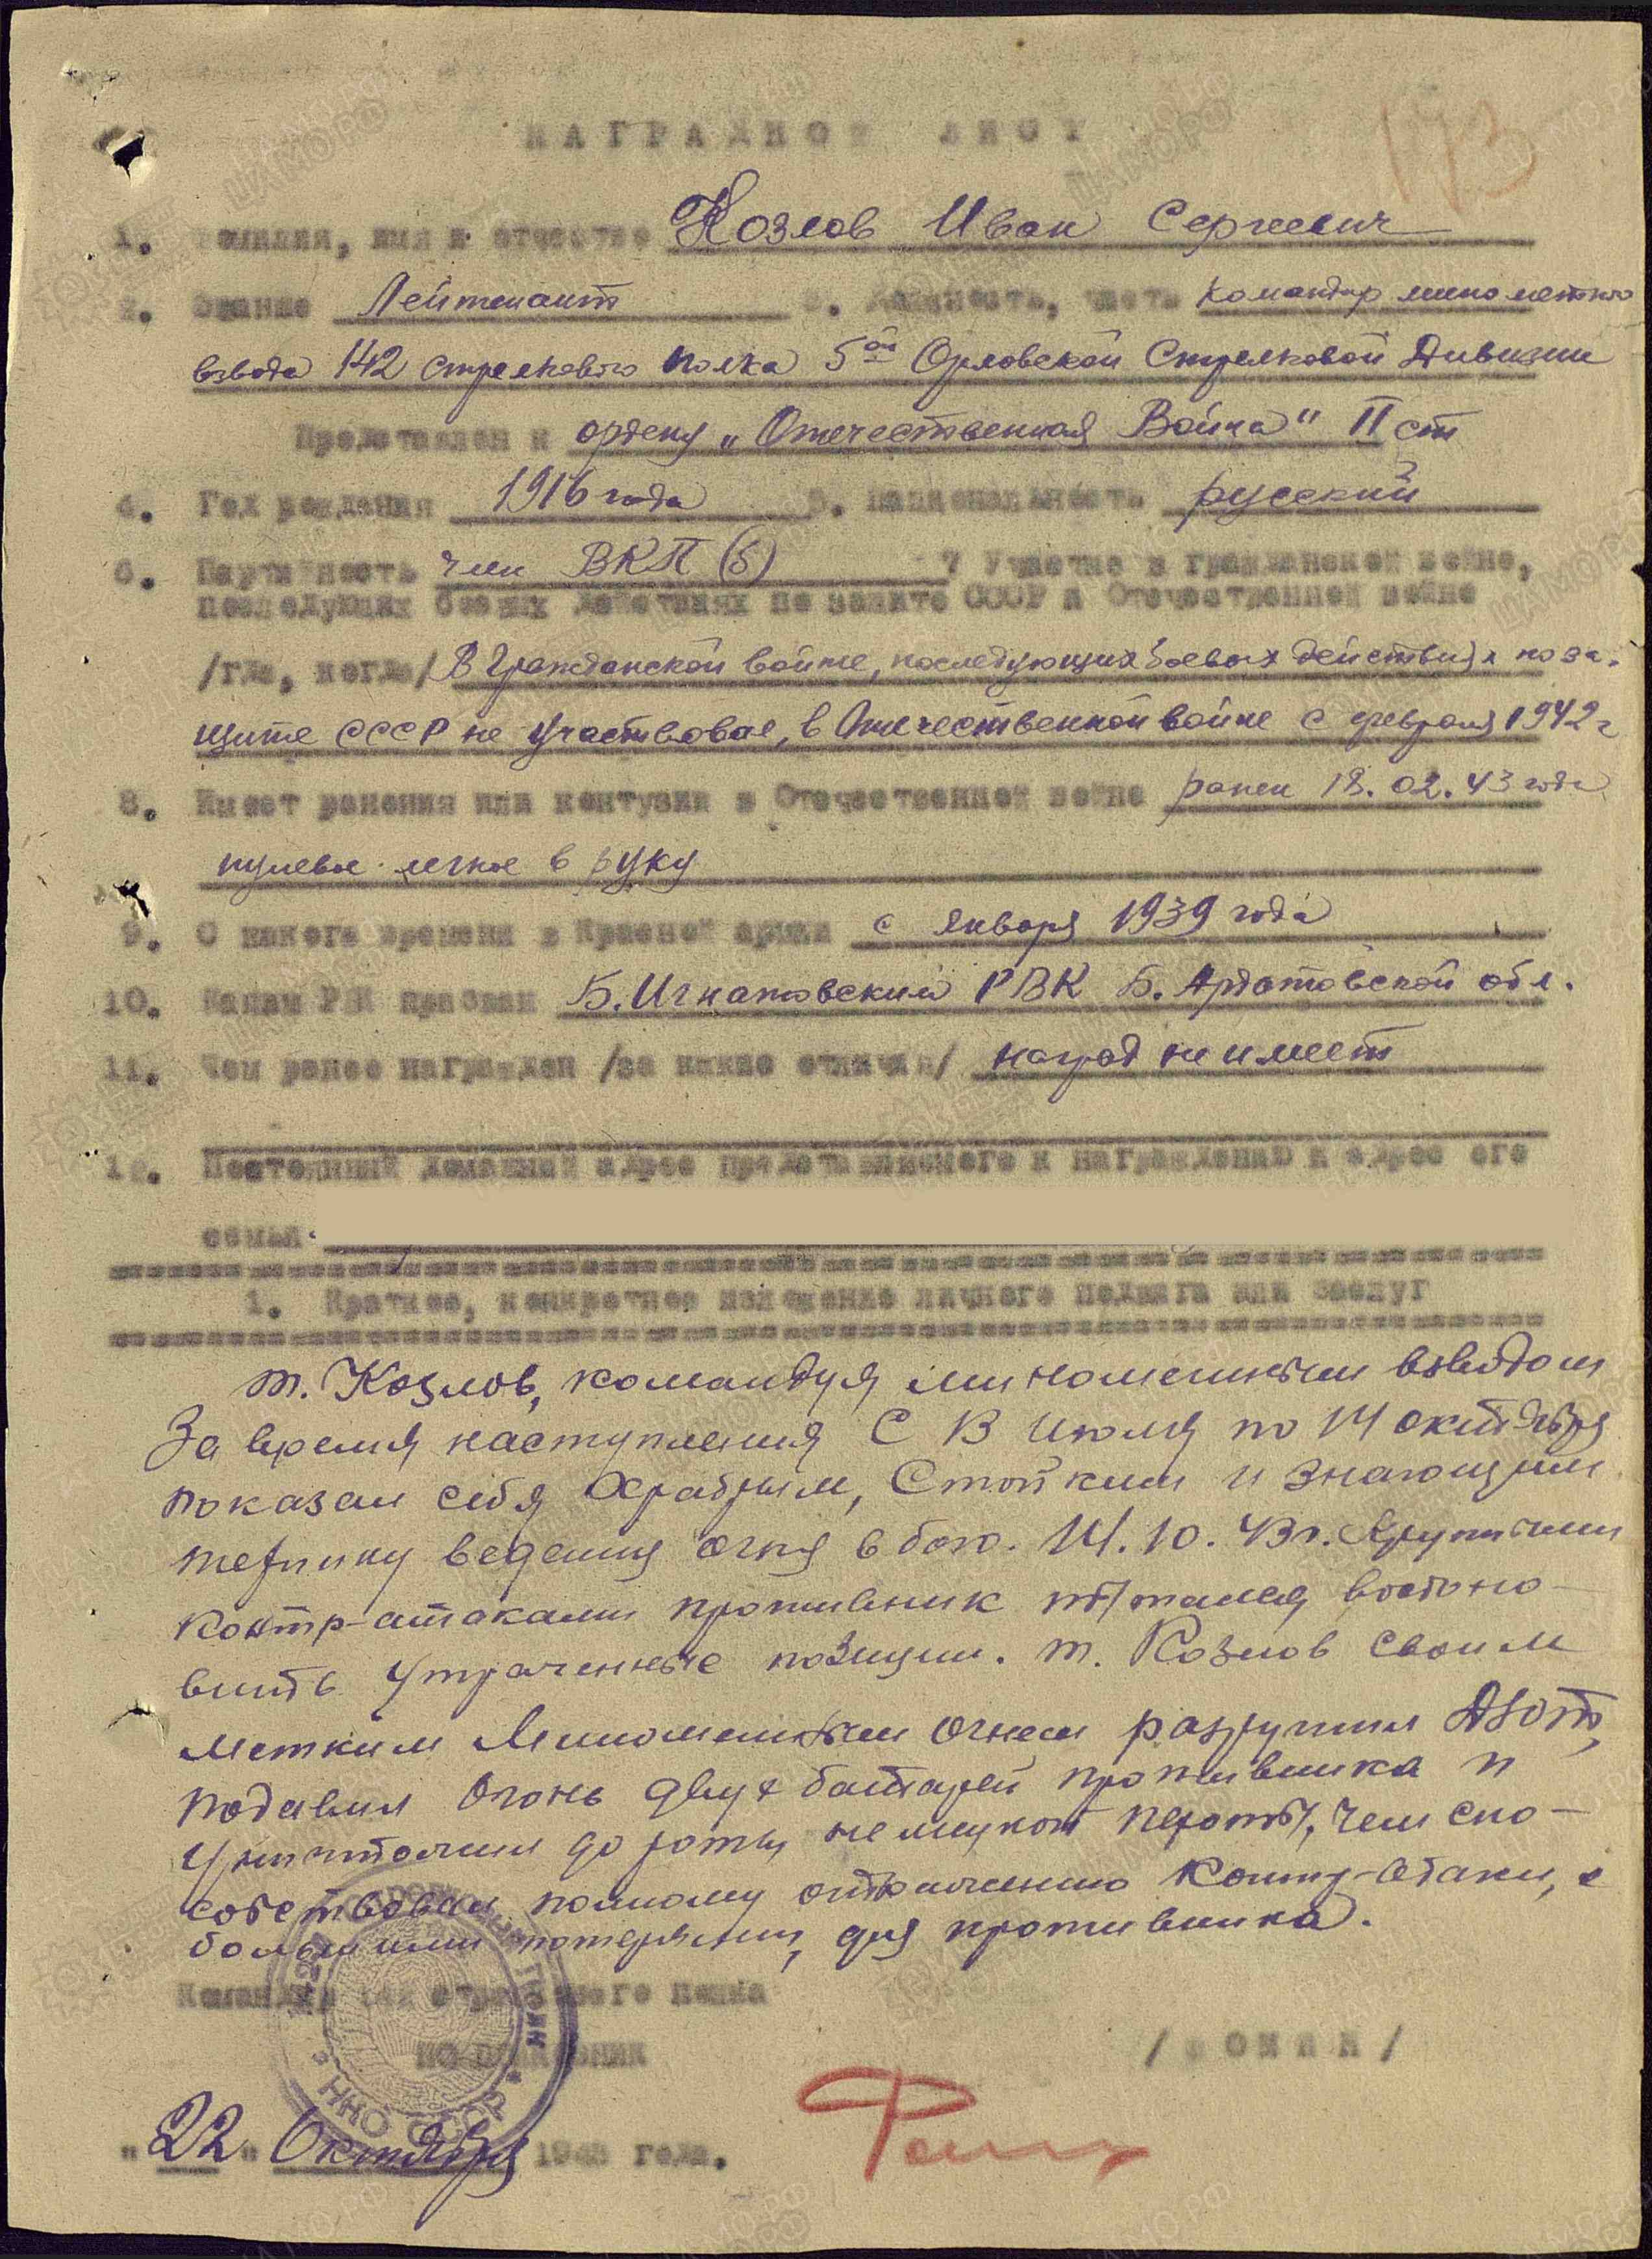 173
НАГРАДНОЙ ЛИСТ
1. Фамилия, имя и отчество Козлов Иван Сергеевич
2. Звание Лейтенант 3. Должность, часть командир минометного
взвода 142 стрелкового полка 5ой Орловской Стрелковой Дивизии
Представлен к ордену „Отечественная Война" II ст
4. Год рождения 1916 года 5. Национальность русский
6. Партийность член ВКП(б) 7 Участие в гражданской войне,
последующих боевых действиях по защите СССР и Отечественной войне
/где, когда/ В Гражданской войне, последующих боевых действиях по за-
щите СССР не участвовал, в Отечественной войне с февраля 1942 г
8. Имеет ранения или контузии в Отечественной войне ранен 18.02.43 года
пулевое легкое в руку
9. С какого времени в Красной армии с января 1939 года
10. Каким РВК призван Б. Игнатовский РВК Б. Ардатовской обл.
11. Чем ранее награжден /за какие отличия/ наград не имеет
12. Постоянный домашний адрес представляемого к награждению и адрес его
семьи
1. Краткое, конкретное изложение личного подвига или заслуг
т. Козлов, командуя минометным взводом
За время наступления С 13 июля по 14 октября
показал себя храбрым, Стойким и знающим
технику ведения огня в бою. 14.10.43г. Крупными
контр-атаками противник пытался востоно-
вить утраченные позиции. т. Козлов своим
метким Минометным огнем разрушил ДЗОТ,
подавил Огонь двух батарей противника и
Уничтожил до роты немецкой пехоты, чем спо-
собствовал полному отражению Контр-Атаки, с
большими потерями, для противника.
Командир 142 стрелкового полка
подполковник /ФОМИН/
НКО СССР
"22" Октября 1943 года.